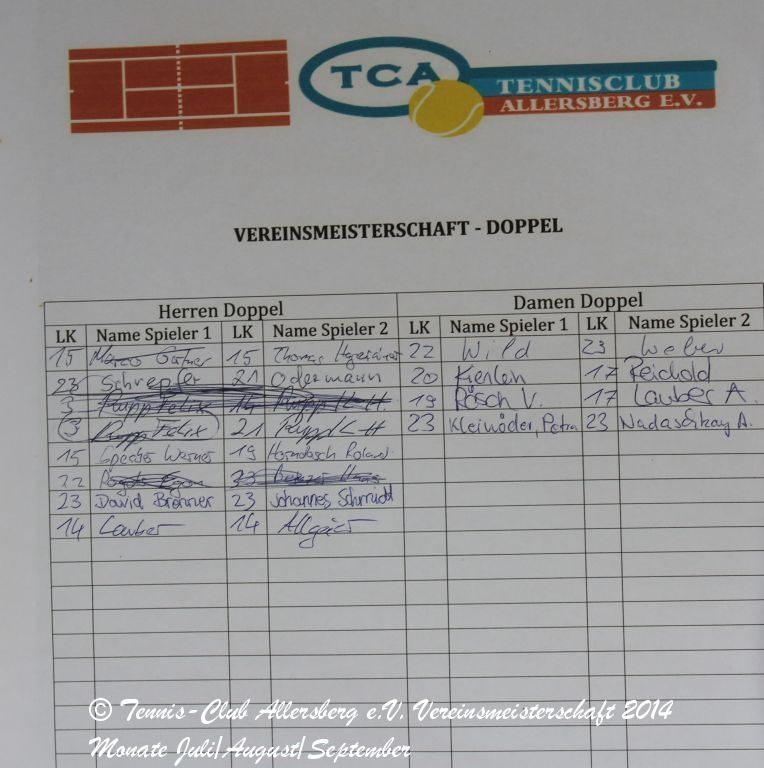 TCA
TENNISCLUB
ALLERSBERG E.V.
VEREINSMEISTERSCHAFT - DOPPEL
Herren Doppel Damen Doppel
LK Name Spieler 1 LK Name Spieler 2 LK Name Spieler 1 LK Name Spieler 2
15 15 Thomas 22 Wild 23 Weber
23 Schrepfer 21 Odermann 20 Kienlen 17 Reichold
3 Rupp Felix 14 Rupp H. 19 Rösch V. 17 Lauber A.
3 Rupp Felix 21 Rupp H 23 Kleinöder, Petra 23 A.
15 Werner 19 Roland
22 23
23 David Brenner 23 Johannes Schmidt
14 Lauber 14 Allgaier
© Tennis-Club Allersberg e.V. Vereinsmeisterschaft 2014
Monate Juli|August|September